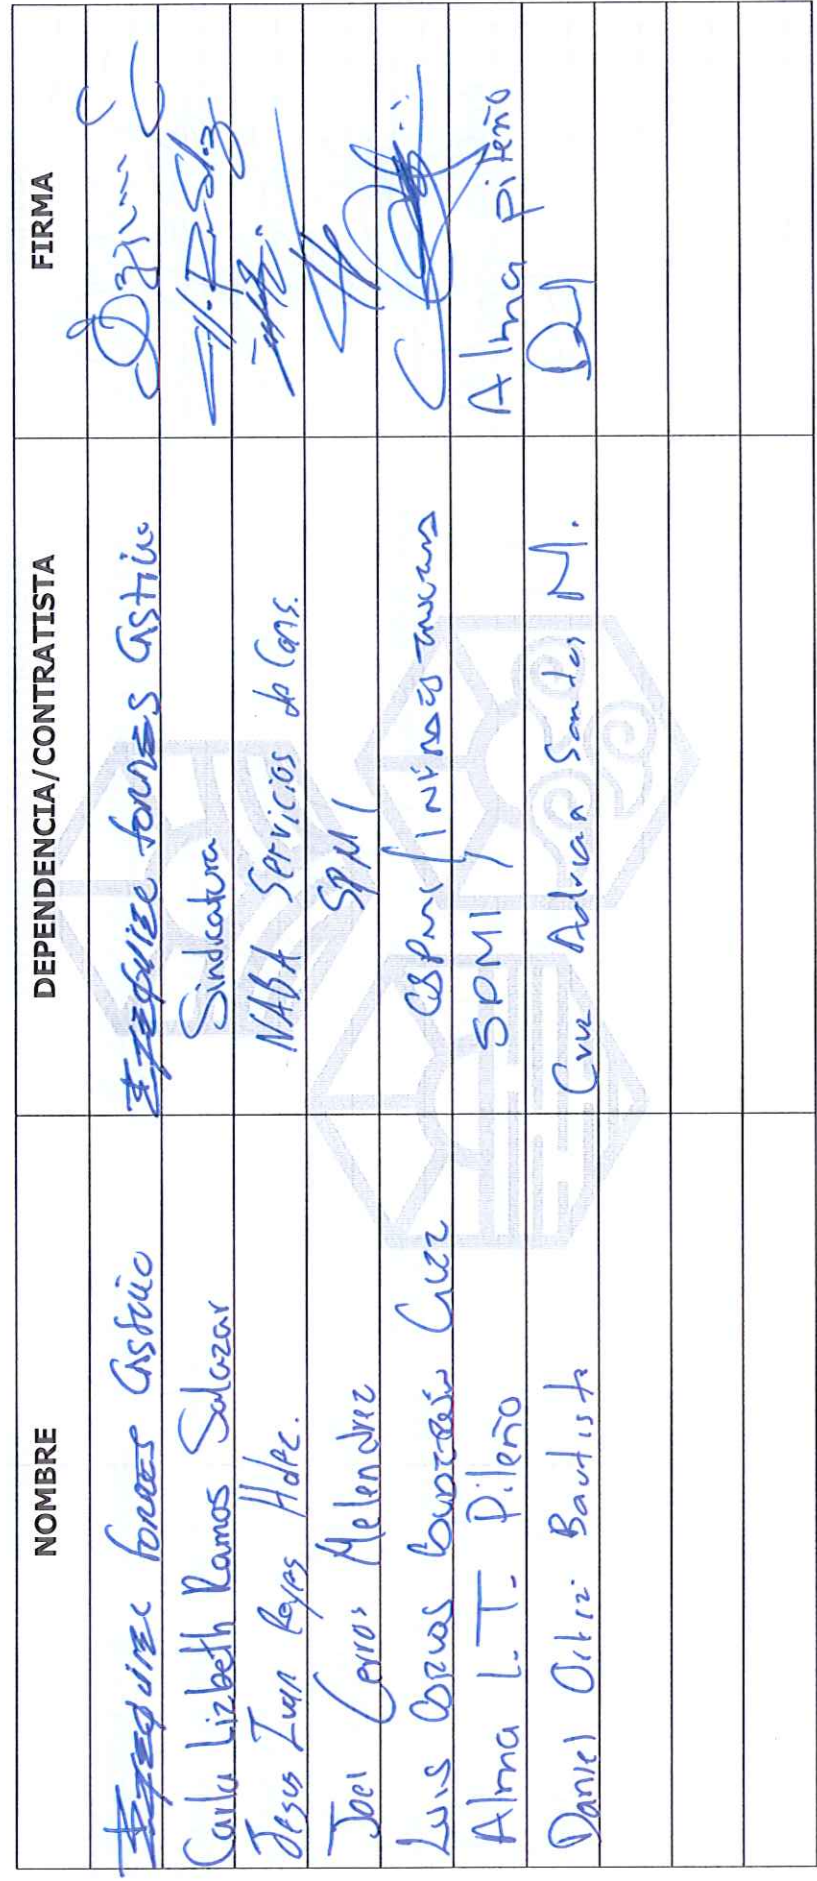 NOMBRE DEPENDENCIA/CONTRATISTA FIRMA
Ezequiel Torres Castillo Ezequiel Torres Castillo
Carla Lizbeth Ramos Salazar Sindicatura
Jesus Ivan Reyes Hdez. NABA Servicios de Cons.
Joel Cerros Melendrez SPMI
Luis Cruz
Alma L. T. Pileño SPMI Alma Pileño
Daniel Ortiz Bautista Cruz Adrian Santos M.